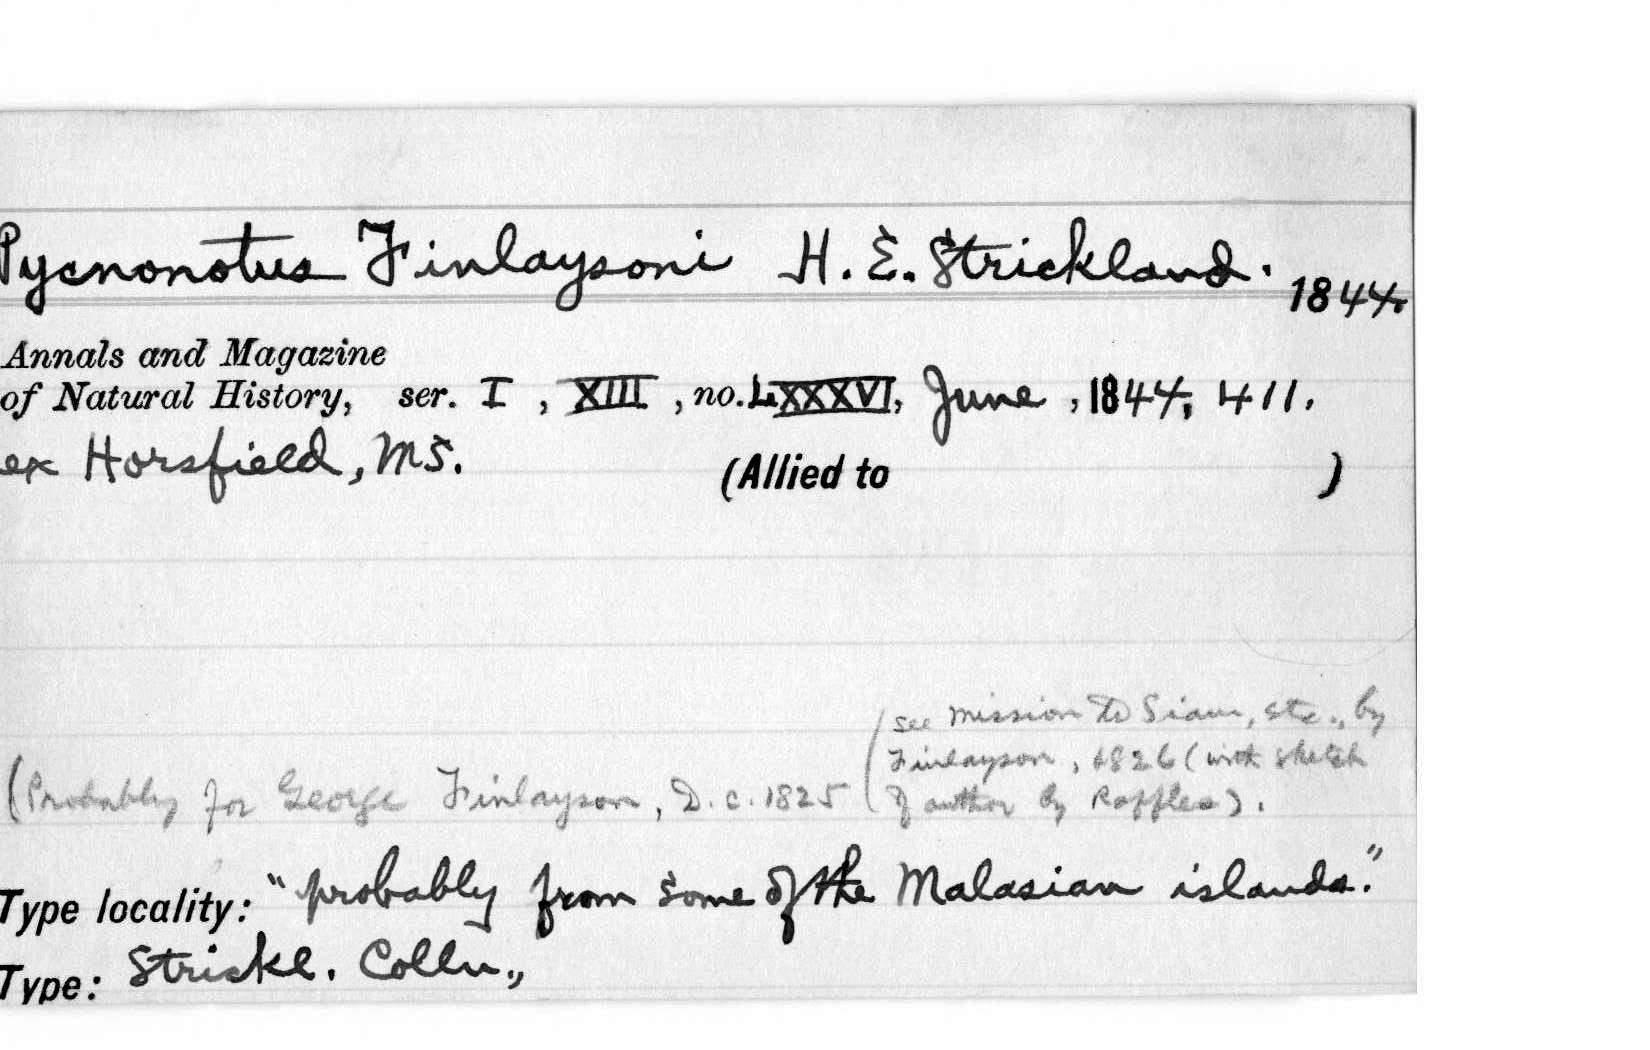 Pycnonotus Finlaysoni H. E. Strickland. 1844.
Annals and Magazine
of Natural History, ser. I , XIII , no. LXXXVI, June , 1844, 411.
ex Horsfield, MS. (Allied to )
(see mission to Siam, etc., by
Finlayson, 1826 (with sketch
(Probably for George Finlayson, D. c. 1825 of author by Raffles).
Type locality: "probably from some of the Malasian islands."
Type: Strickl. Colln.,